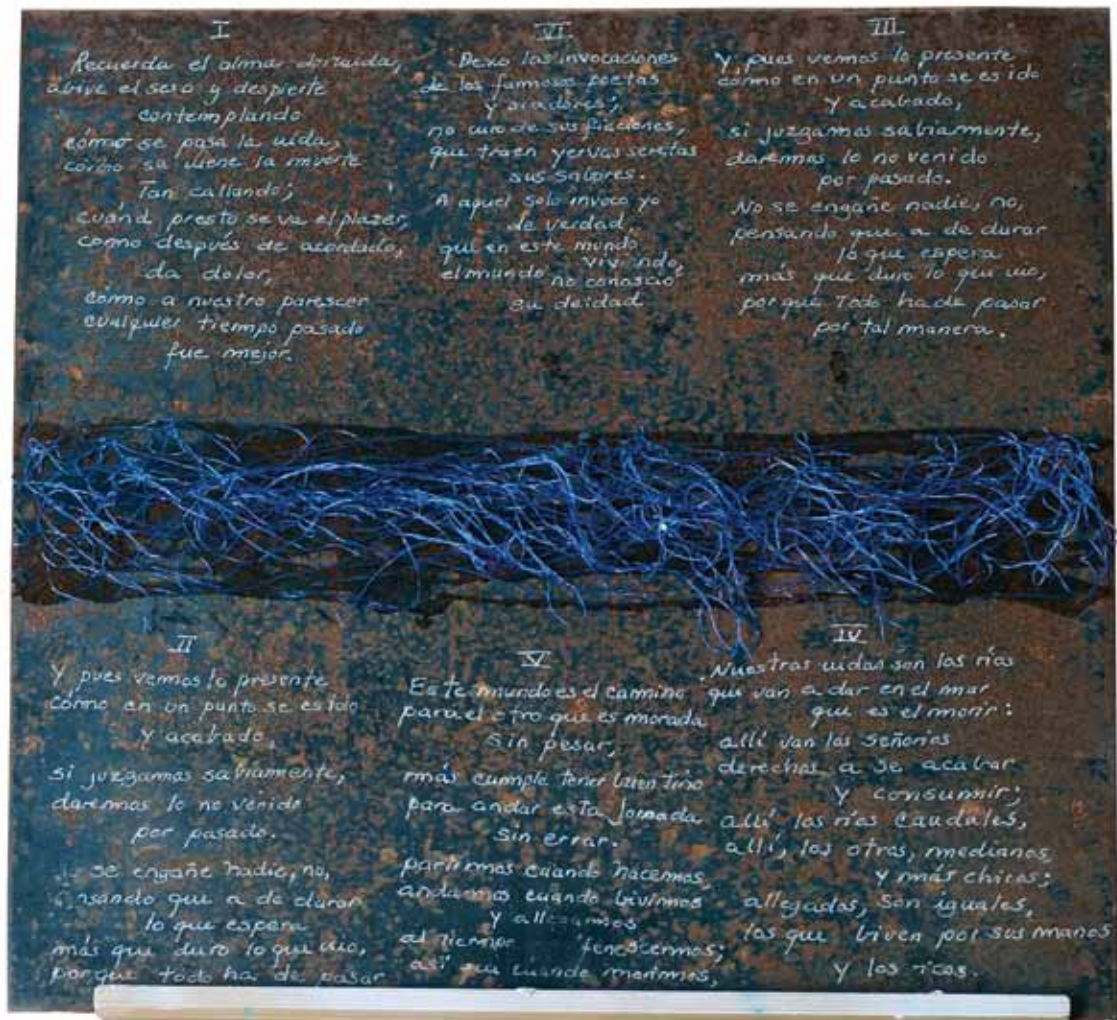 I
Recuerda el alma dormida,
abive el seso y despierte
contemplando
cómo se pasa la uida,
cómo se uiene la muerte
Tan callando;
cuánd presto se va el plazer,
como después de acordado,
da dolor,
cómo a nuestro parescer
cualquier tiempo pasado
fue mejor.
VI
Dexo las invocaciones
de los famosos poetas
y oradores;
no curo de sus ficciones,
que traen yervas secretas
sus sabores.
A aquel solo invoco yo
de verdad,
que en este mundo
viviendo,
el mundo no conosció
su deidad
III
Y pues vemos lo presente
cómo en un punto se es ido
y acabado,
si juzgamos sabiamente,
daremos lo no venido
por pasado.
No se engañe nadie, no,
pensando que a de durar
lo que espera
más que duro lo que uio,
porque Todo ha de pasar
por tal manera.
II
Y pues vemos lo presente
cómo en un punto se es ido
y acabado,
si juzgamos sabiamente,
daremos lo no venido
por pasado.
se engañe nadie, no,
que a de durar
lo que espera
más que duro lo que uio,
porque todo ha de pasar
V
Este mundo es el camino
para el otro que es morada
sin pesar,
más cumple tener buen tino
para andar esta Jornada
sin errar.
partimos cuando nacemos,
andamos cuando bivimos
y allegamos
al tiempo fenescemos;
así que cuando morimos,
IV
Nuestras uidas son los ríos
que van a dar en el mar
que es el morir:
allí van los señoríos
derechos a se acabar
y consumir;
allí los ríos caudales,
allí, los otros, medianos,
y más chicos;
allegados, son iguales,
los que biven por sus manos
y los ricos.